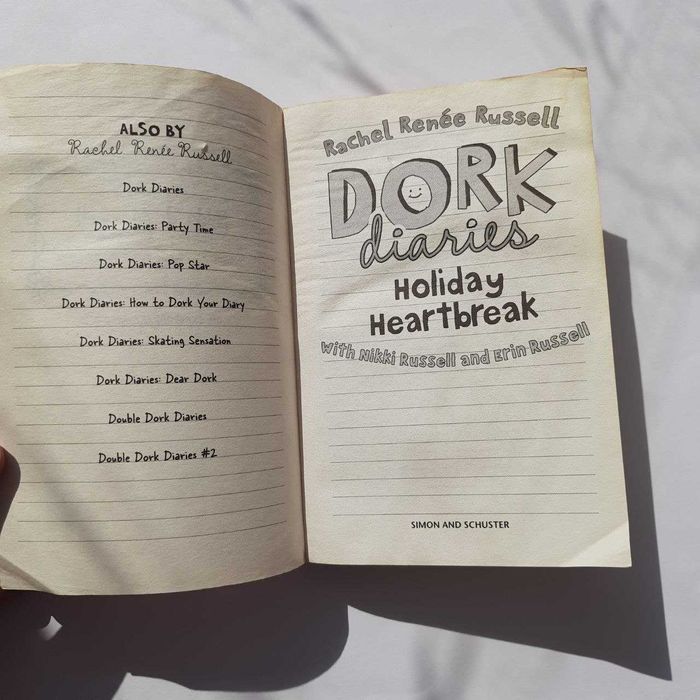 ALSO BY
Rachel Renée Russell
Dork Diaries
Dork Diaries: Party Time
Dork Diaries: Pop Star
Dork Diaries: How to Dork Your Diary
Dork Diaries: Skating Sensation
Dork Diaries: Dear Dork
Double Dork Diaries
Double Dork Diaries #2
Rachel Renée Russell
DORK
diaries
Holiday
Heartbreak
with Nikki Russell and Erin Russell
SIMON AND SCHUSTER